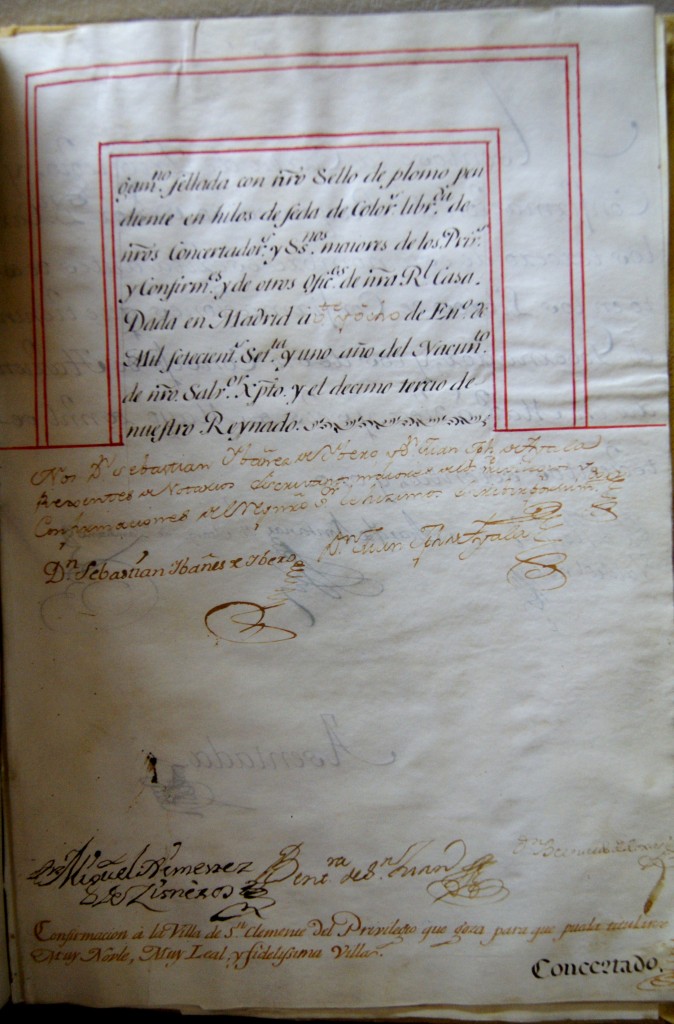 gam.no sellada con nr̃o Sello de plomo pen
diente en hilos de seda de Color.s libr.da de
nr̃os Concertador.s y Ss.nos maiores de los Priv.s
y Confirm.es y de otros Ofic.es de nr̃a R.l Casa.
Dada en Madrid a v.te y ocho de En.o de
Mil setecien.s Set.ta y uno año del Nacim.to
de nr̃o Salv.or Xp̃to. y el decimo tercio de
nuestro Reynado.
Nos D.n Sebastian Ibañez de Ibero D.n Juan Jph. de Ayala
Regentes de Notarios Escrivanos maiores de los Privilegios y
Confirmaciones del Rey nr̃o S.or lo hizimos escrivir
D.n Sebastian Ibañes de Ibero
D.n Juan Jph de Ayala
Asentada
Miguel Ximenez
de Zisneros
Bent.ra de S.n Juan
Confirmacion à la Villa de S.n Clemente del Privilegio que goza para que pueda titularse
Muy Noble, Muy Leal y fidelisima Villa.
Concertado.